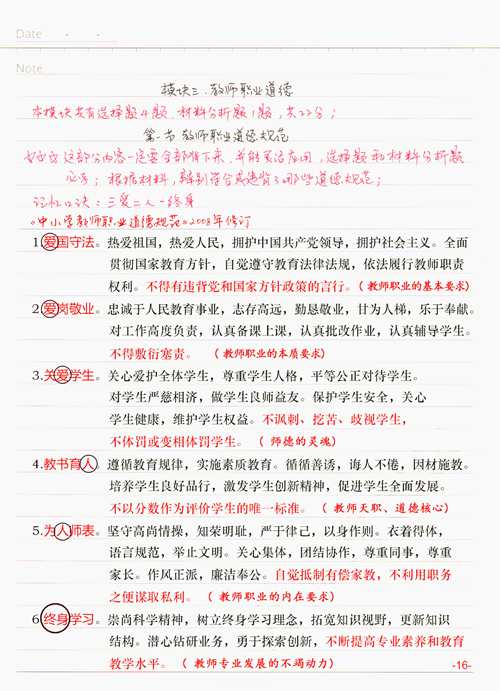 Date · ·
Note
模块三.教师职业道德
本模块共有选择题4题.材料分析题1题,共22分;
第一节 教师职业道德规范
这部分内容一定要全部背下来,并能灵活应用,选择题和材料分析题
必考;根据材料,辨别符合或违背了哪些道德规范;
记忆口诀:三爱二人一终身
《中小学教师职业道德规范》2008年修订
1.爱国守法。热爱祖国,热爱人民,拥护中国共产党领导,拥护社会主义。全面
贯彻国家教育方针,自觉遵守教育法律法规,依法履行教师职责
权利。不得有违背党和国家方针政策的言行。(教师职业的基本要求)
2.爱岗敬业。忠诚于人民教育事业,志存高远,勤恳敬业,甘为人梯,乐于奉献。
对工作高度负责,认真备课上课,认真批改作业,认真辅导学生。
不得敷衍塞责。(教师职业的本质要求)
3.关爱学生。关心爱护全体学生,尊重学生人格,平等公正对待学生。
对学生严慈相济,做学生良师益友。保护学生安全,关心
学生健康,维护学生权益。不讽刺、挖苦、歧视学生,
不体罚或变相体罚学生。(师德的灵魂)
4.教书育人。遵循教育规律,实施素质教育。循循善诱,诲人不倦,因材施教。
培养学生良好品行,激发学生创新精神,促进学生全面发展。
不以分数作为评价学生的唯一标准。(教师天职、道德核心)
5.为人师表。坚守高尚情操,知荣明耻,严于律己,以身作则。衣着得体,
语言规范,举止文明。关心集体,团结协作,尊重同事,尊重
家长。作风正派,廉洁奉公。自觉抵制有偿家教,不利用职务
之便谋取私利。(教师职业的内在要求)
6.终身学习。崇尚科学精神,树立终身学习理念,拓宽知识视野,更新知识
结构。潜心钻研业务,勇于探索创新,不断提高专业素养和教育
教学水平。(教师专业发展的不竭动力)
-16-